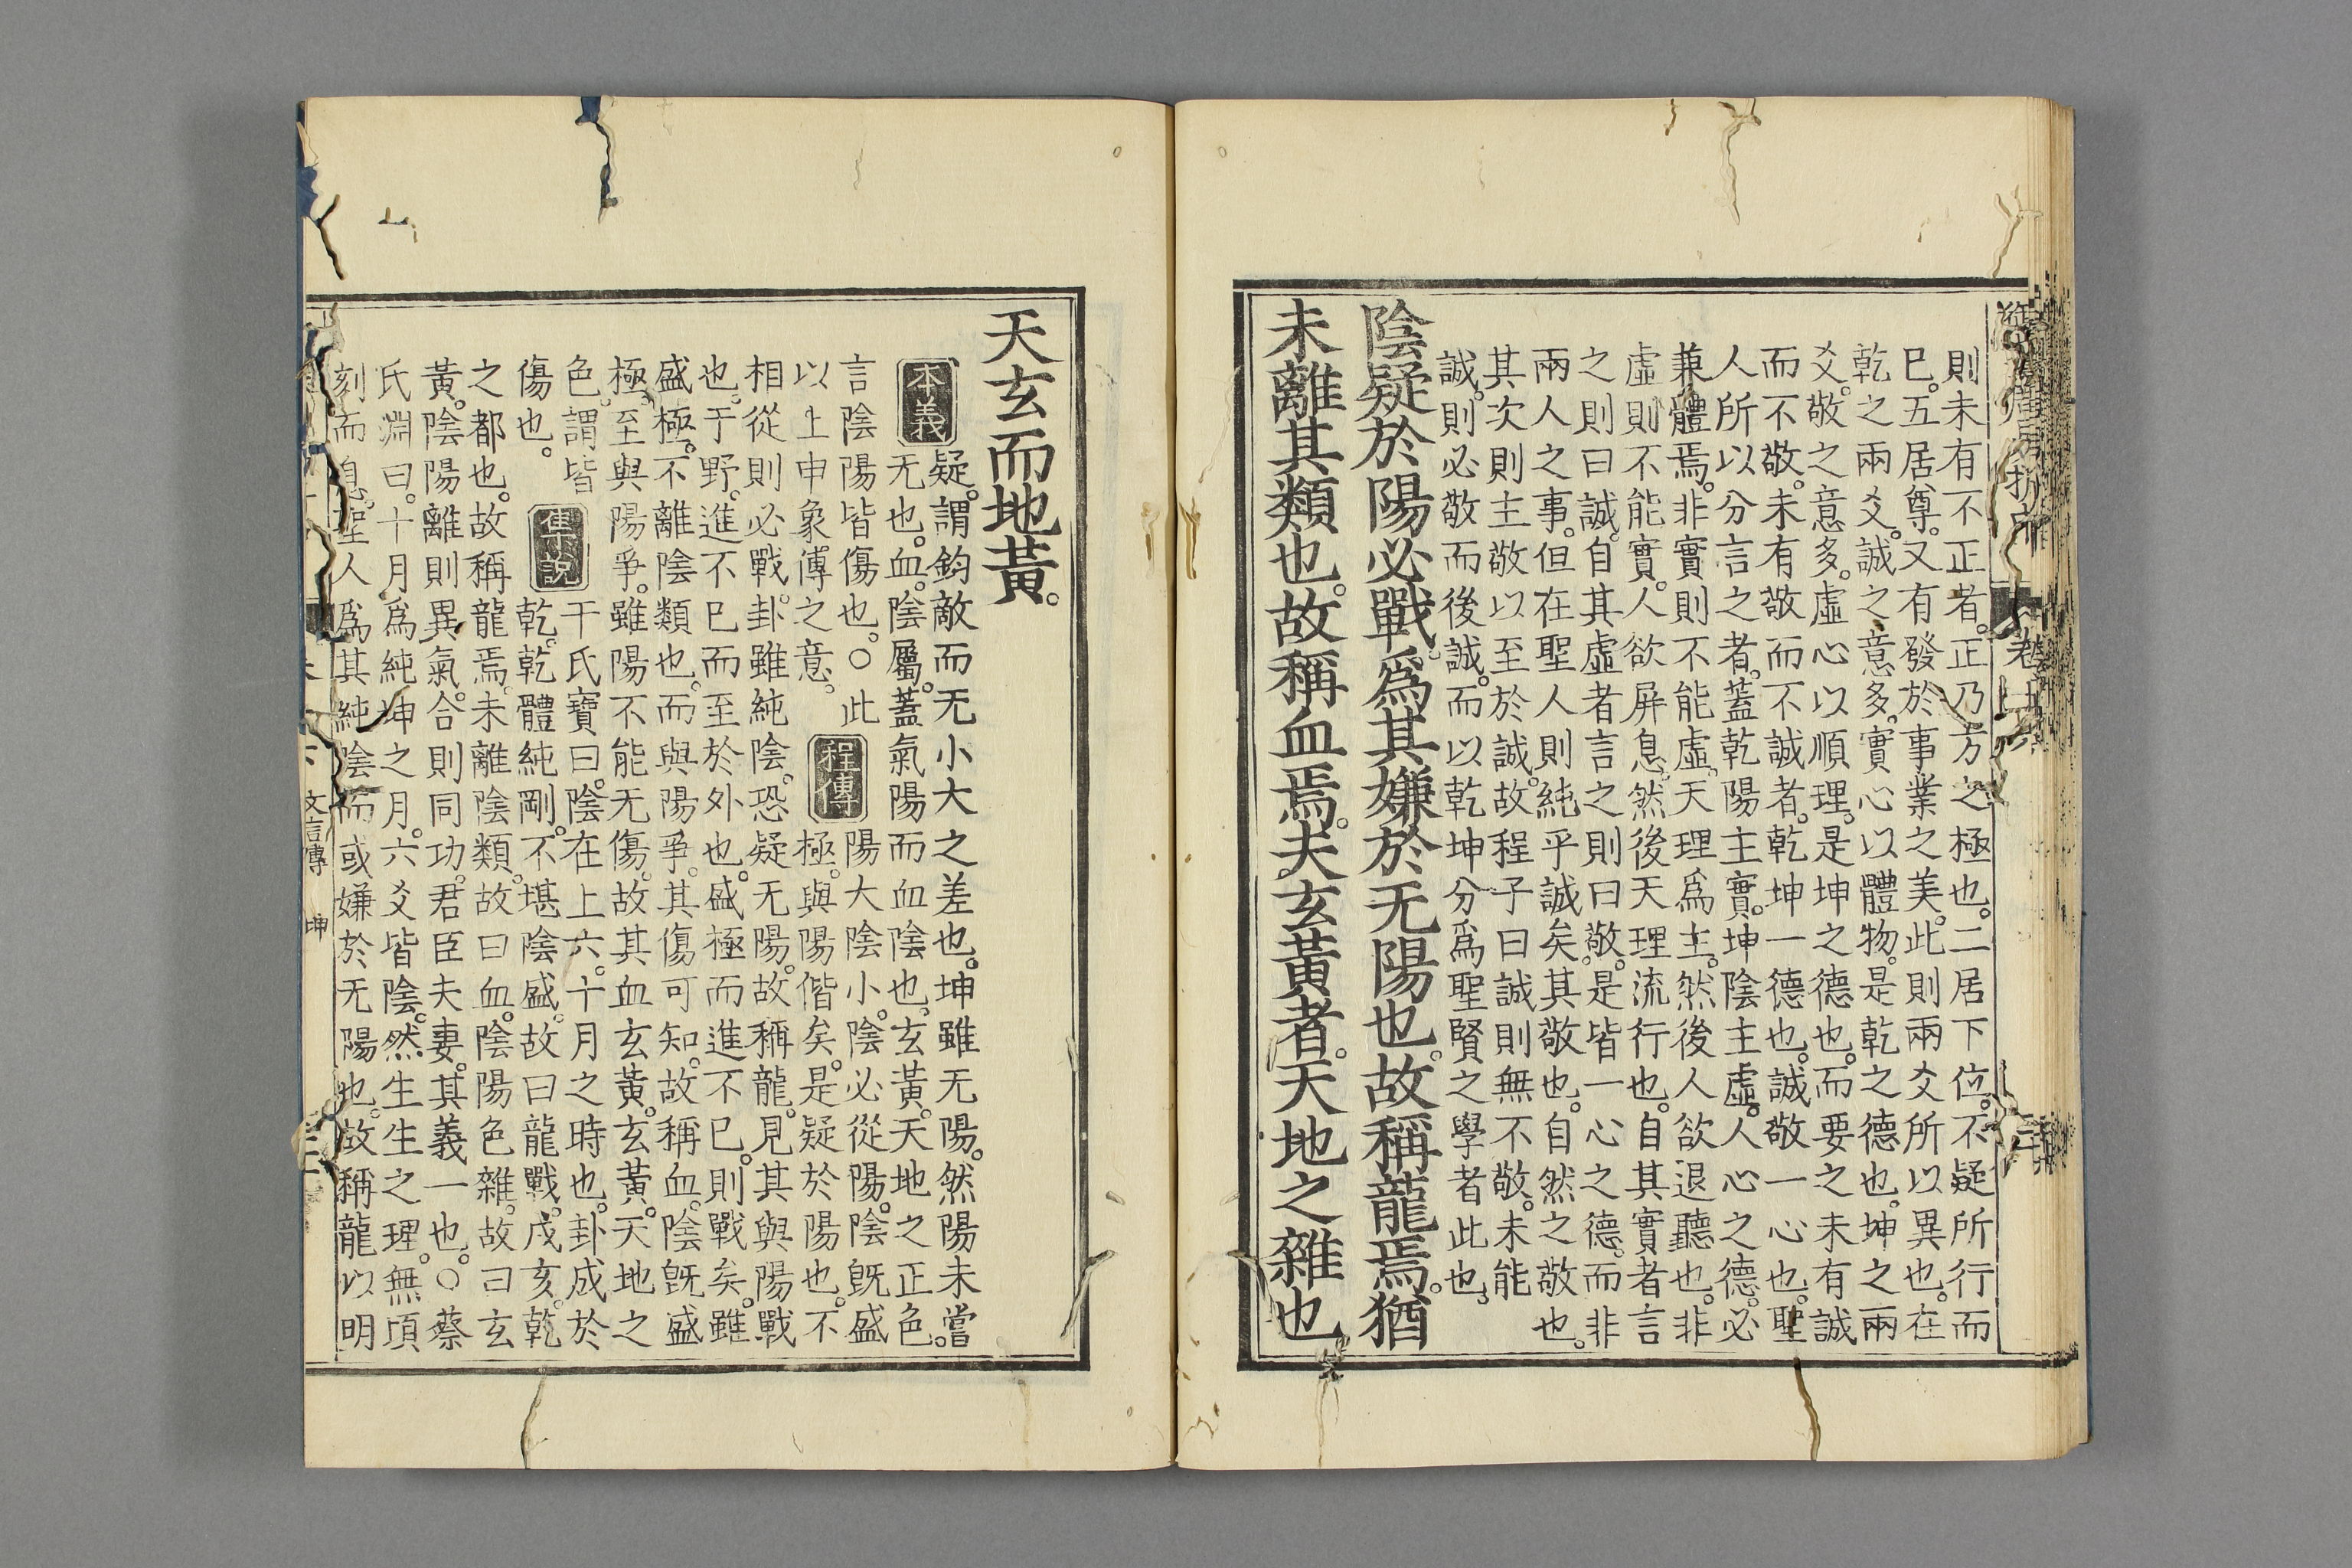 則未有不正者。正乃方之極也。二居下位。不疑所行而
已。五居尊。又有發於事業之美。此則兩爻所以異也。在
乾之兩爻。誠之意多。實心以體物。是乾之德也。坤之兩
爻。敬之意多。虛心以順理。是坤之德也。而要之未有誠
而不敬。未有敬而不誠者。乾坤一德也。誠敬一心也。聖
人所以分言之者。蓋乾陽主實。坤陰主虛。人心之德。必
兼體焉。非實則不能虛。天理爲主。然後人欲退聽也。非
虛則不能實。人欲屏息。然後天理流行也。自其實者言
之則曰誠。自其虛者言之則曰敬。是皆一心之德。而非
兩人之事。但在聖人則純乎誠矣。其敬也。自然之敬也。
其次則主敬以至於誠。故程子曰誠則無不敬。未能
誠。則必敬而後誠。而以乾坤分爲聖賢之學者此也。
陰疑於陽必戰。爲其嫌於无陽也。故稱龍焉。猶
未離其類也。故稱血焉。夫玄黃者。天地之雜也
天玄而地黃。
本義
疑。謂鈞敵而无小大之差也。坤雖无陽。然陽未嘗
无也。血。陰屬。蓋氣陽而血陰也。玄黃。天地之正色。
言陰陽皆傷也。○此
以上申象傳之意。
程傳
陽大陰小。陰必從陽。陰旣盛
極。與陽偕矣。是疑於陽也。不
相從則必戰。卦雖純陰。恐疑无陽。故稱龍。見其與陽戰
也。于野。進不已而至於外也。盛極而進不已。則戰矣。雖
盛極。不離陰類也。而與陽爭。其傷可知。故稱血。陰旣盛
極。至與陽爭。雖陽不能无傷。故其血玄黃。玄黃。天地之
色。謂皆
傷也。
集說
干氏寶曰。陰在上六。十月之時也。卦成於
乾。乾體純剛。不堪陰盛。故曰龍戰。戌亥。乾
之都也。故稱龍焉。未離陰類。故曰血。陰陽色雜。故曰玄
黃。陰陽離則異氣。合則同功。君臣夫妻。其義一也。○蔡
氏淵曰。十月爲純坤之月。六爻皆陰。然生生之理。無頃
刻而息。聖人爲其純陰而或嫌於无陽也。故稱龍以明
文言傳 坤